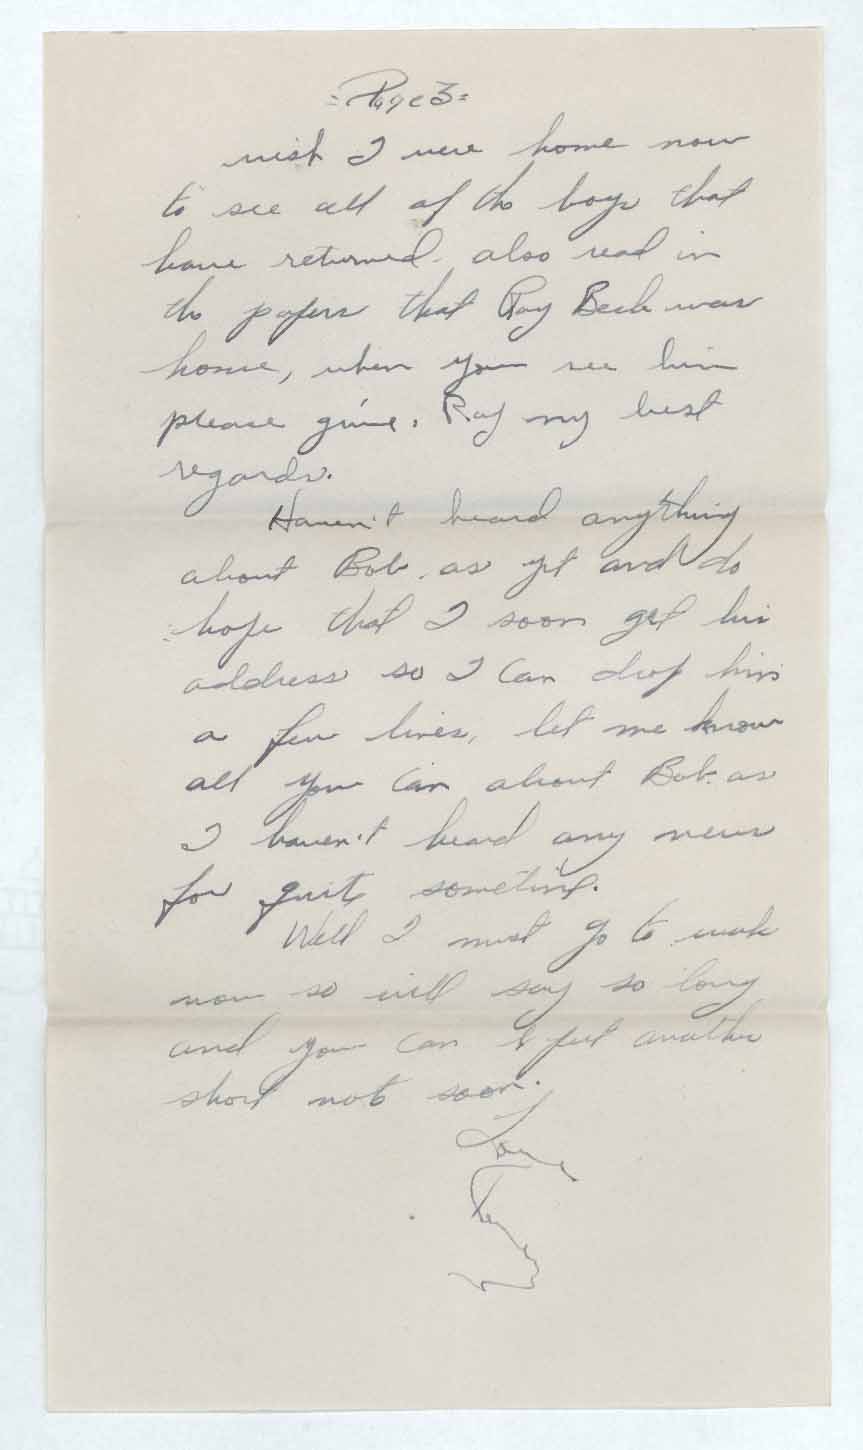 =Page 3=
wish I were home now
to see all of the boys that
have returned. also read in
the papers that Ray Beck was
home, when you see him
please give. Ray my best
regards.
Haven't heard anything
about Bob. as yet and do
hope that I soon get his
address so I can drop him
a few lines, let me know
all you can about Bob. as
I haven't heard any news
for quite sometime.
Well I must go to work
now so will say so long
and you can expect another
short note soon.
Love